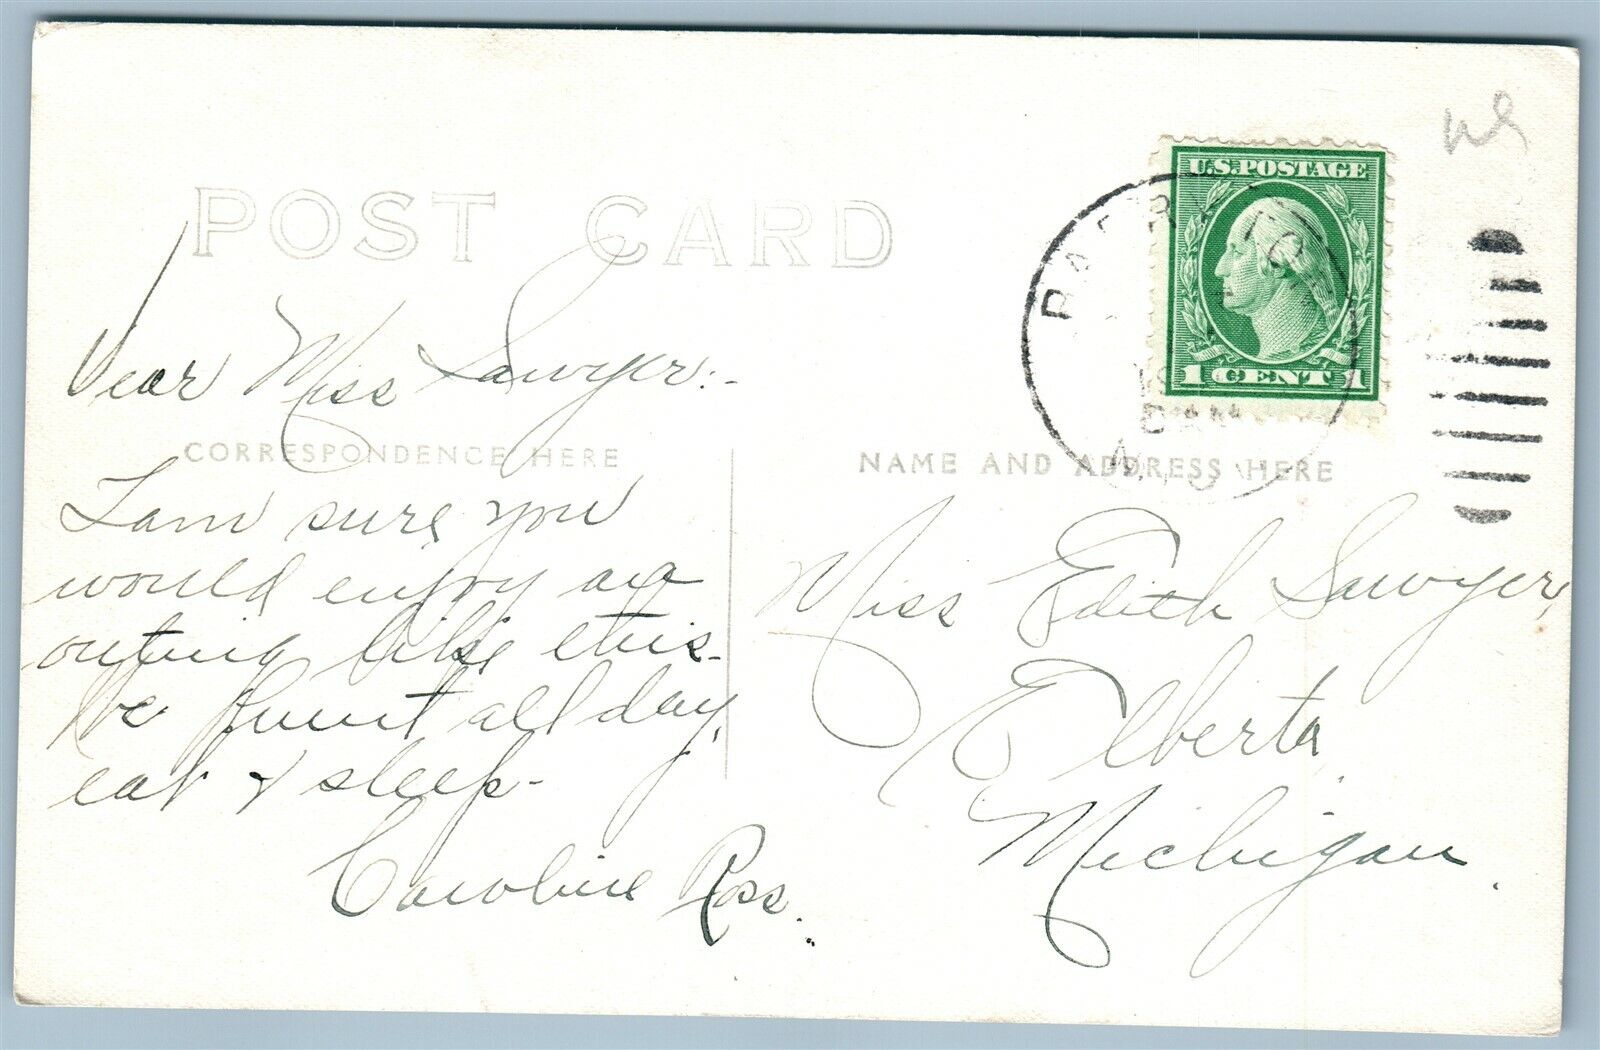 POST CARD
U.S. POSTAGE
1 CENT 1
Dear Miss Sawyer:-
CORRESPONDENCE HERE
NAME AND ADDRESS HERE
I am sure you
would enjoy an
outing like this-
We hunt all day,
eat & sleep-
Caroline Ross.
Miss Edith Sawyer,
Elberta,
Michigan.